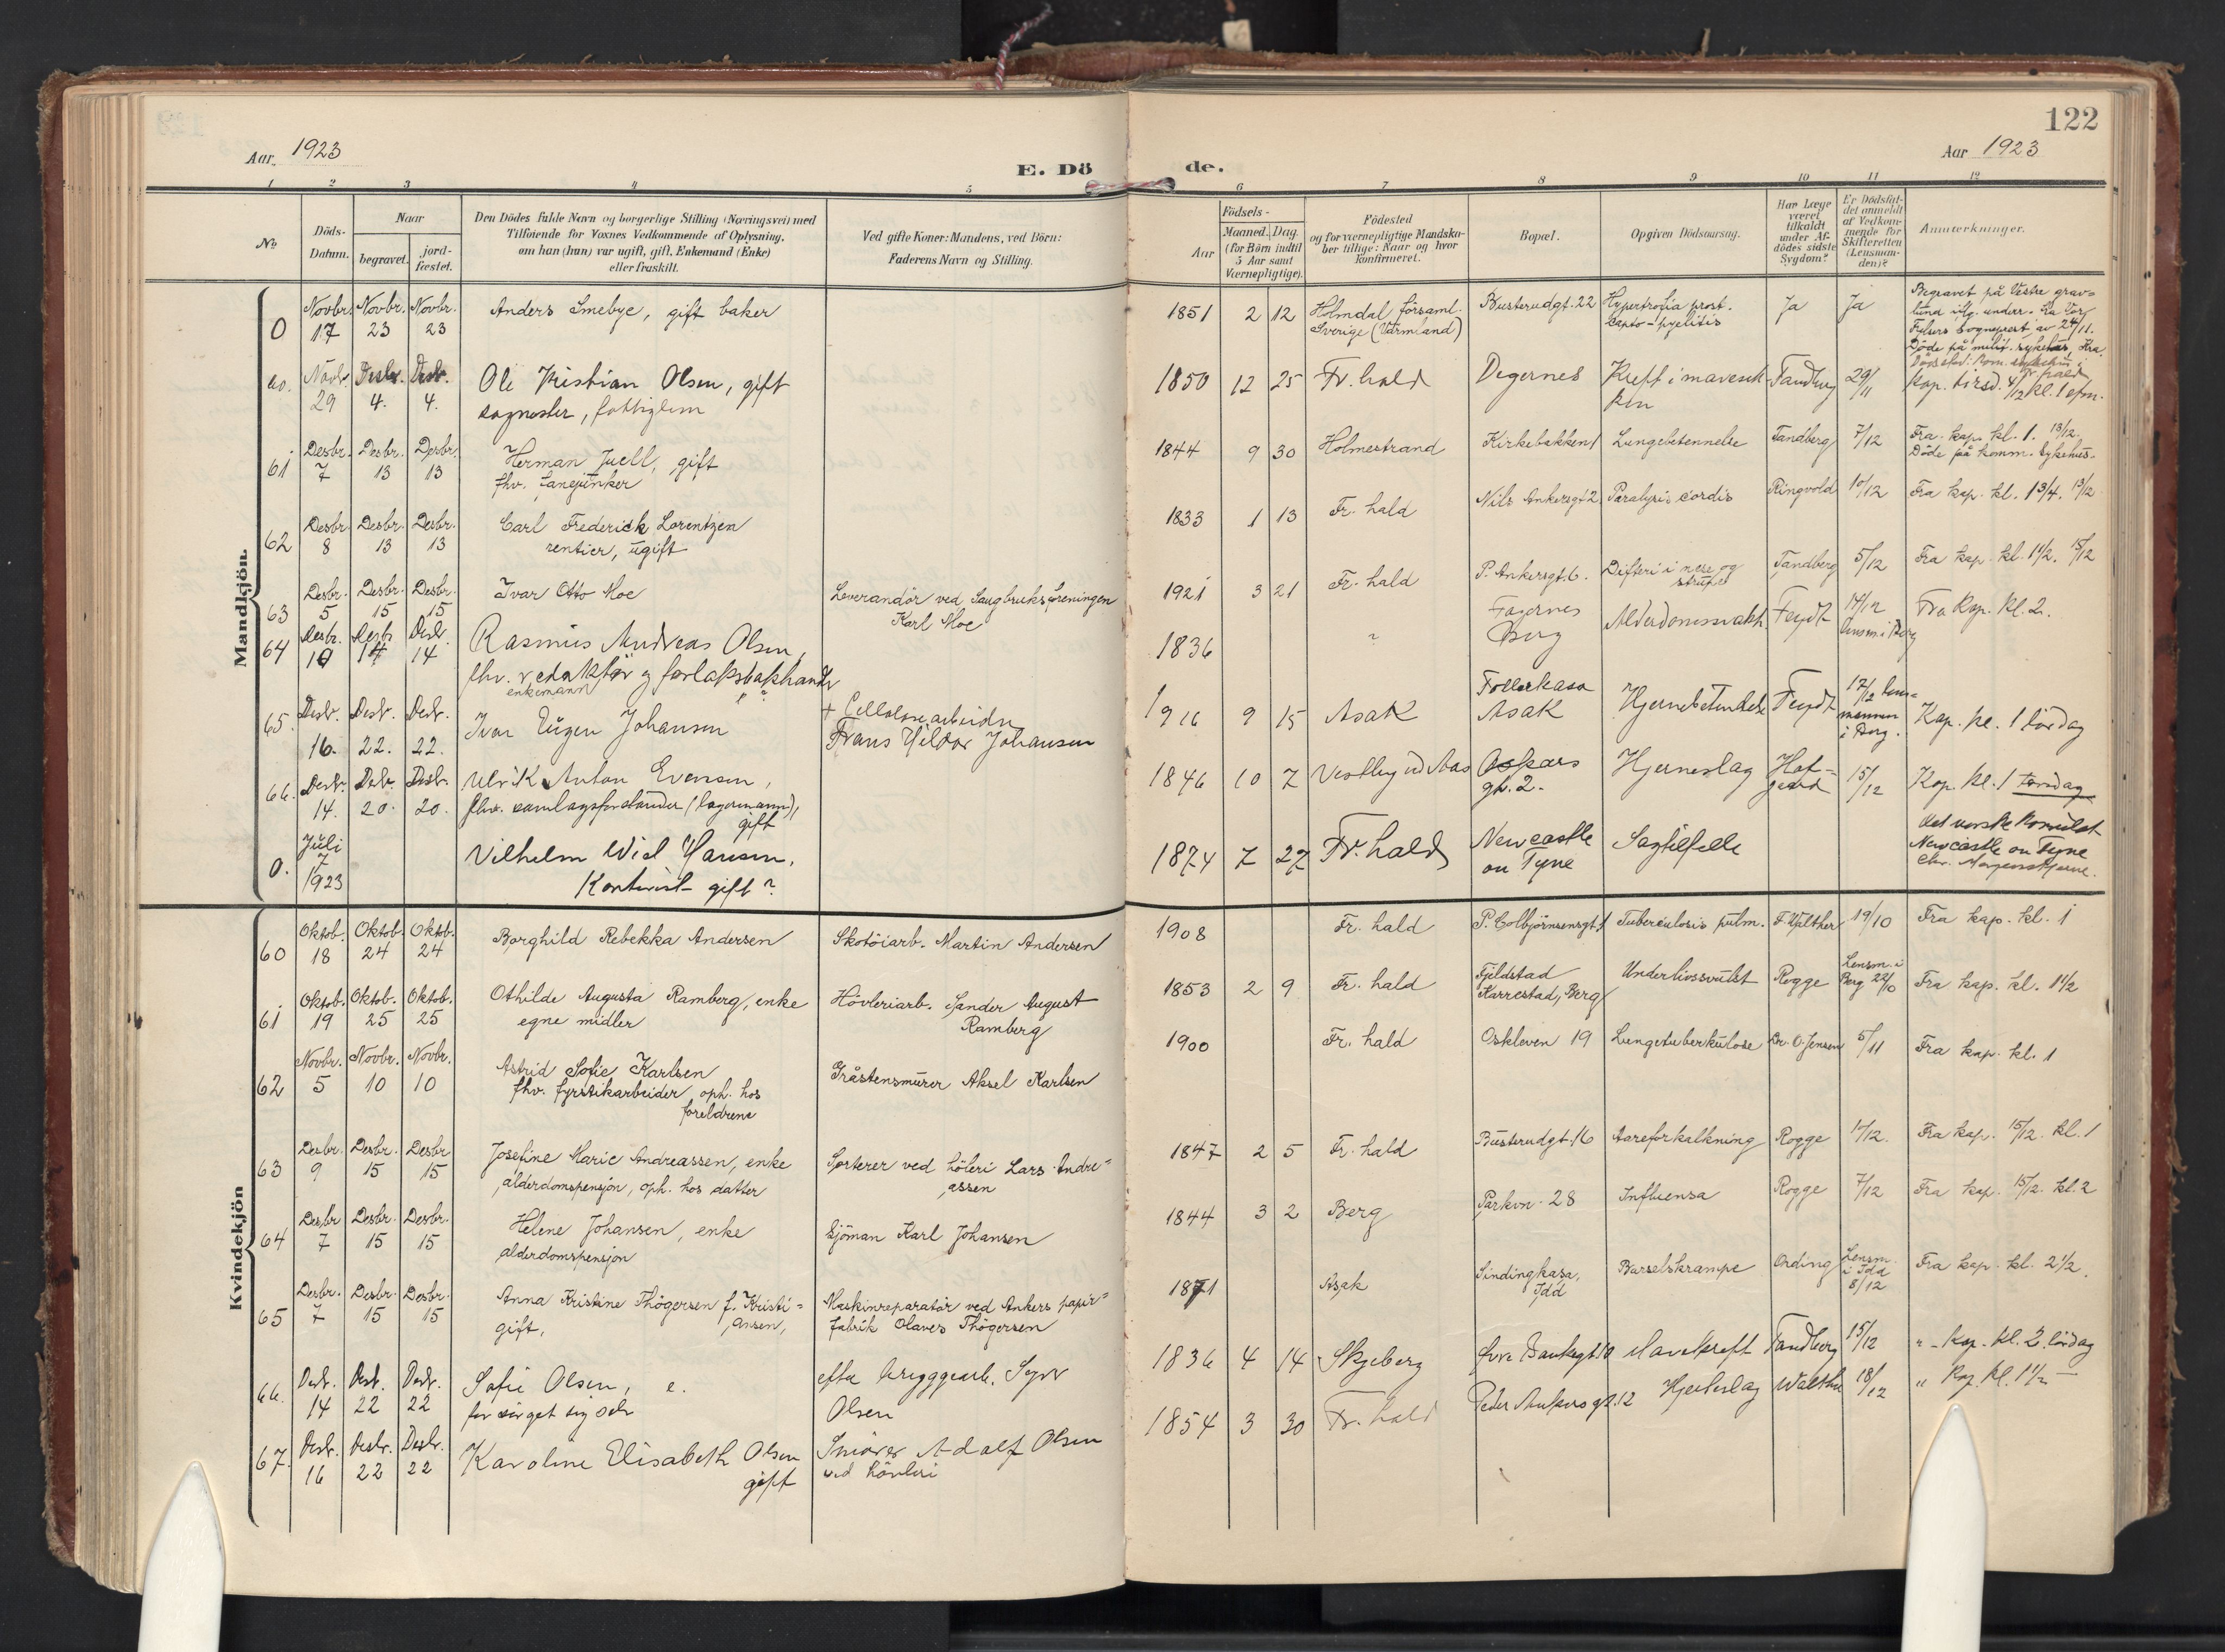 122
Aar 1923
E. Dö
de.
Aar 1923
1 2 3 4 5 6 7 8 9 10 11 12
No.
Döds-
Datum.
Naar
begravet.
jord-
fæstet.
Den Dödes fulde Navn og borgerlige Stilling (Næringsvei) med
Tilföiende for Voxnes Vedkommende af Oplysning,
om han (hun) var ugift, gift, Enkemand (Enke)
eller fraskilt.
Ved gifte Koner: Mandens, ved Börn:
Faderens Navn og Stilling.
Födsels-
Aar
Maaned. Dag.
(for Börn indtil
5 Aar samt
Værnepligtige).
Födested
og for værnepligtige Mandska-
ber tillige: Naar og hvor
konfirmeret.
Bopæl.
Opgiven Dödsaarsag.
Har Læge
været
tilkaldt
under Af-
dödes sidste
Sygdom?
Er Dödsfal-
det anmeldt
af Vedkom-
mende for
Skifteretten
(Lensman-
den)?
Anmærkninger.
Mandkjön.
0 Novbr. 17 Novbr. 23 Novbr. 23 Anders Smebye, gift baker
1851 2 12 Holmdal församl.
Sverige (Värmland)
Busterudgt. 22 Hypertrofia prost.
pyelitis
Ja Ja Begravet på Vestre grav-
lund
60. Novbr. 29 Desbr. 4. Desbr. 4. Ole Kristian Olsen, gift
fattiglem
1850 12 25 Fr.hald Degernes Kreft i mavesek-
ken
Tandberg 29/11 Kap. tirsd. 4/12 kl. 1 efm.
61 Desbr. 7 Desbr. 13 Desbr. 13 Herman Juell, gift
fhv. fanejunker
1844 9 30 Holmestrand Kirkebakken 1 Lungebetennelse Tandberg 7/12 Fra kap. kl. 1. 13/12.
Döde på komm. sykehus.
62 Desbr. 8 Desbr. 13 Desbr. 13 Carl Frederick Lorentzen
rentier, ugift
1833 1 13 Fr. hald Nils Ankersgt 2 Paralysis cordis Ringvold 10/12 Fra kap. kl. 1 3/4. 13/12
63 Desbr. 5 Desbr. 15 Desbr. 15 Ivar Otto Moe
Leverandör ved Saugbruksforeningen
Karl Moe
1921 3 21 Fr. hald P. Ankersgt. 6. Difteri i nese og
strupe
Tandberg 5/12 Fra kap. kl. 1 1/2. 15/12
64 Desbr. 10 Desbr. 14 Desbr. 14 Rasmus Andreas Olsen,
fhv. redaktör og forlaksbokhandler
enkemann
1836 " Fagernes
Berg
Alderdomssvakh. Feydt 14/12
lensm. i Berg
Fra Kap. kl. 2.
65. Desbr. 16. Desbr. 22. Desbr. 22. Ivar Eugen Johansen
+ Cellulosearbeider
Frans Hildor Johansen
1916 9 15 Asak Follerkasa
Asak
Hjernebetendelse Feydt 17/12 lens-
mannen
i Berg.
Kap. kl. 1 lördag
66. Desbr. 14. Desbr. 20. Desbr. 20. Ulrik Anton Evensen,
fhv. samlagsforstander (lagermann),
gift
1846 10 7 Vestby ved Aas Oskars
gt. 2.
Hjerneslag Hof-
gaard
15/12 Kap. kl. 1 torsdag
0. Juli 7 1923 Vilhelm Wiel Hansen,
Kontorist gift?
1874 7 27 Fr.hald Newcastle
on Tyne
Slagtilfelle
Det norske konsulat
Newcastle on Tyne
Kvindekjön
60 Oktob. 18 Oktob. 24 Oktob. 24 Borghild Rebekka Andersen Skotöiarb. Martin Andersen
1908 Fr. hald P. Colbjörnsensgt. 1 Tuberculosis pulm. F. Walther 19/10 Fra kap. kl. 1
61 Oktob. 19 Oktob. 25 Oktob. 25 Othilde Augusta Ramberg, enke
egne midler
Hövleriarb. Sander August
Ramberg
1853 2 9 Fr. hald Fjeldstad
Karrestad, Berg
Underlivssvulst Rogge Lensm. i
Berg 22/10
Fra kap. kl. 1 1/2
62 Novbr. 5 Novbr. 10 Novbr. 10 Astrid Sofie Karlsen
fhv. fyrstikarbeider oph. hos
foreldrene
Gråstensmurer Aksel Karlsen
1900 Fr. hald Oskleven 19 Lungetuberkulose Dr. O. Jensen 5/11 Fra kap. kl. 1
63 Desbr. 9 Desbr. 15 Desbr. 15 Josefine Marie Andreassen, enke
alderdomspensjon, oph. hos datter
Sorterer ved höleri Lars Andre-
assen
1847 2 5 Fr. hald Busterudgt. 16 Aareforkalkning Rogge 11/12. Fra kap. 15/12. kl. 1
64 Desbr 7 Desbr. 15 Desbr. 15 Helene Johansen, enke
alderdomspensjon
Sjöman Karl Johansen
1844 3 2 Berg Parkvn. 28 Influensa Rogge 7/12 Fra kap. 15/12. kl. 2
65 Desbr. 7 Desbr. 15 Desbr. 15 Anna Kristine Thögersen f. Kristi-
ansen,
gift,
Maskinreparatör ved Ankers papir-
fabrik Olavus Thögersen
1871 Asak Sindingkasa,
Idd
Barselskrampe Onding Lensm.
i Idd
8/12
Fra kap. kl. 2 1/2.
66. Desbr. 14 Desbr. 22 Desbr. 22 Sofie Olsen, e.
forsörget sig selv
efter bryggearb. Syver
Olsen
1836 4 14 Skjeberg Övre Bankegt. 10 Mavekreft Tandberg 15/12 " - Kap. kl. 2 lördag
67. Desbr. 16 Desbr. 22 Desbr. 22 Karoline Elisabeth Olsen
gift
Snörer Adolf Olsen
ved hövleri
1854 3 30 Fr. hald Peder Ankers gt. 12 Hjerteslag Walther 18/12 " Kap. kl. 1 1/2 -